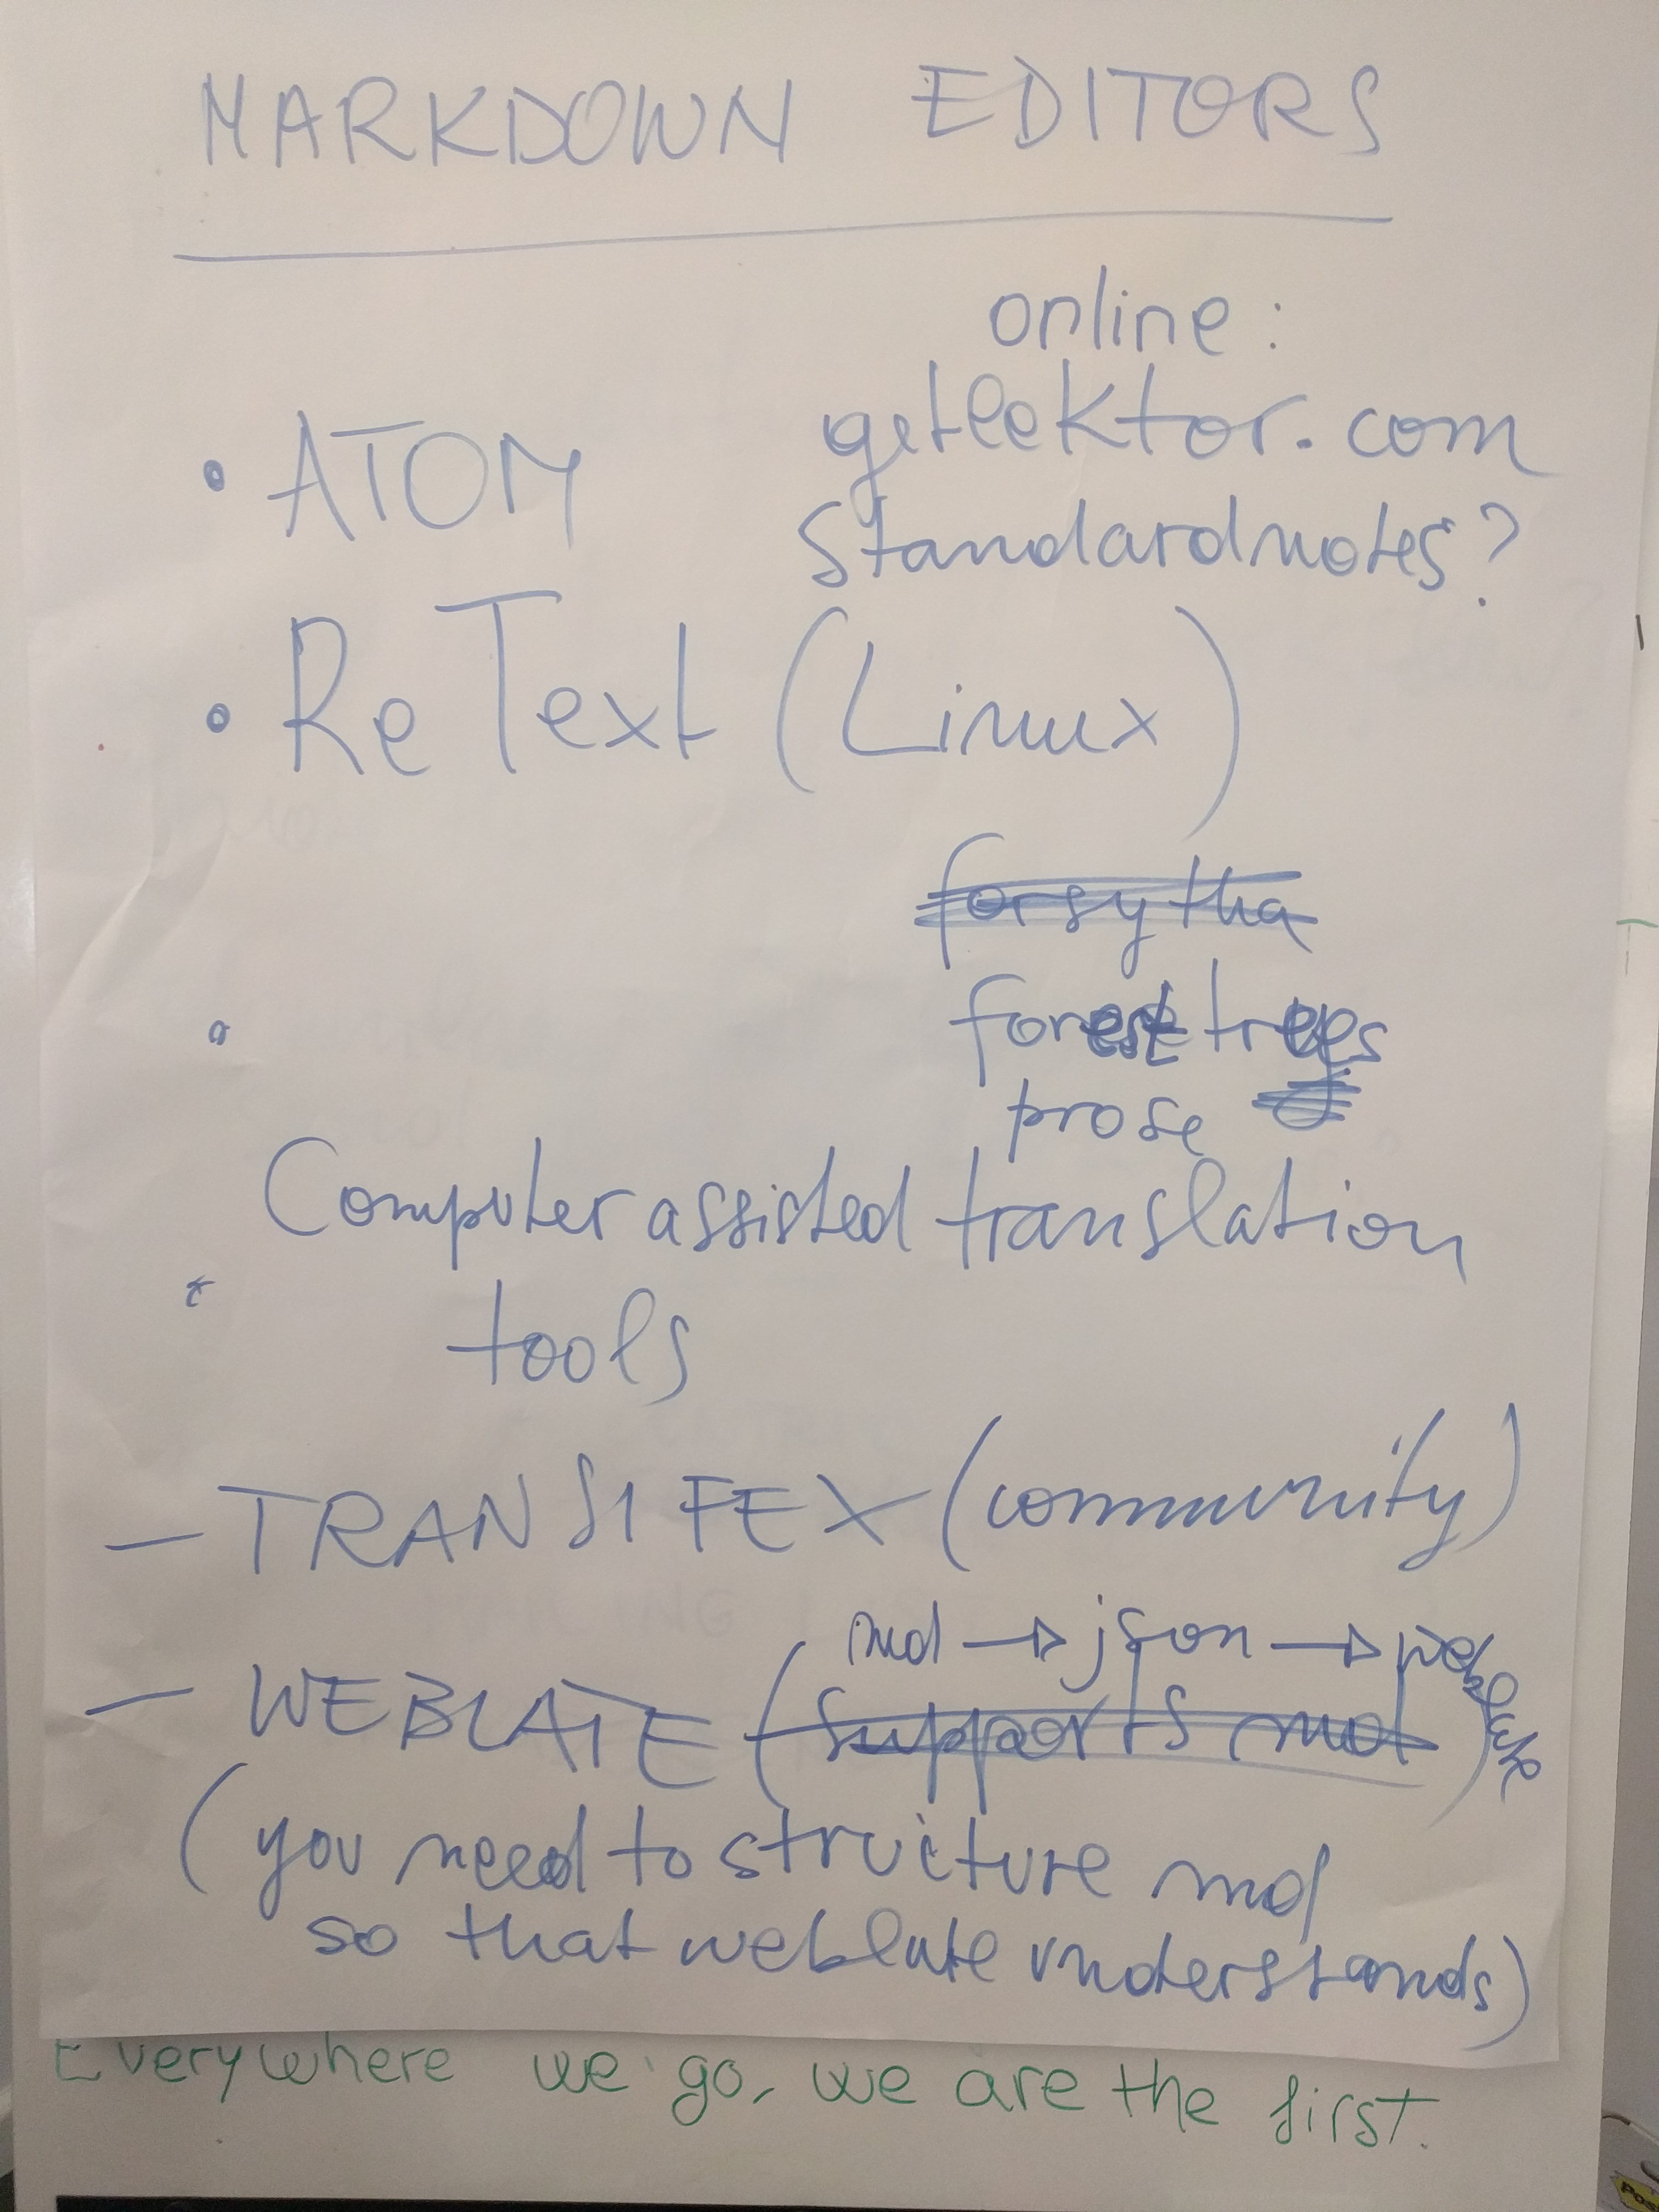 MARKDOWN EDITORS
online:
getlektor.com
• ATOM
standardnotes?
• ReText (Linux)
forsytha
foresttrees
prose
Computer assisted translation
tools
– TRANSIFEX (community)
md → json → weblate
– WEBLATE (supports md)
(you need to structure md
so that weblate understands)
Everywhere we go, we are the first.